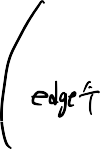 ( edge수